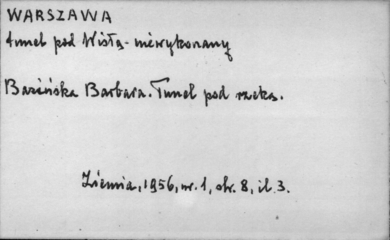 WARSZAWA
tunel pod Wisłą - niewykonany
Bazińska Barbara. Tunel pod rzeką.
Ziemia, 1956, nr. 1, str. 8, il. 3.